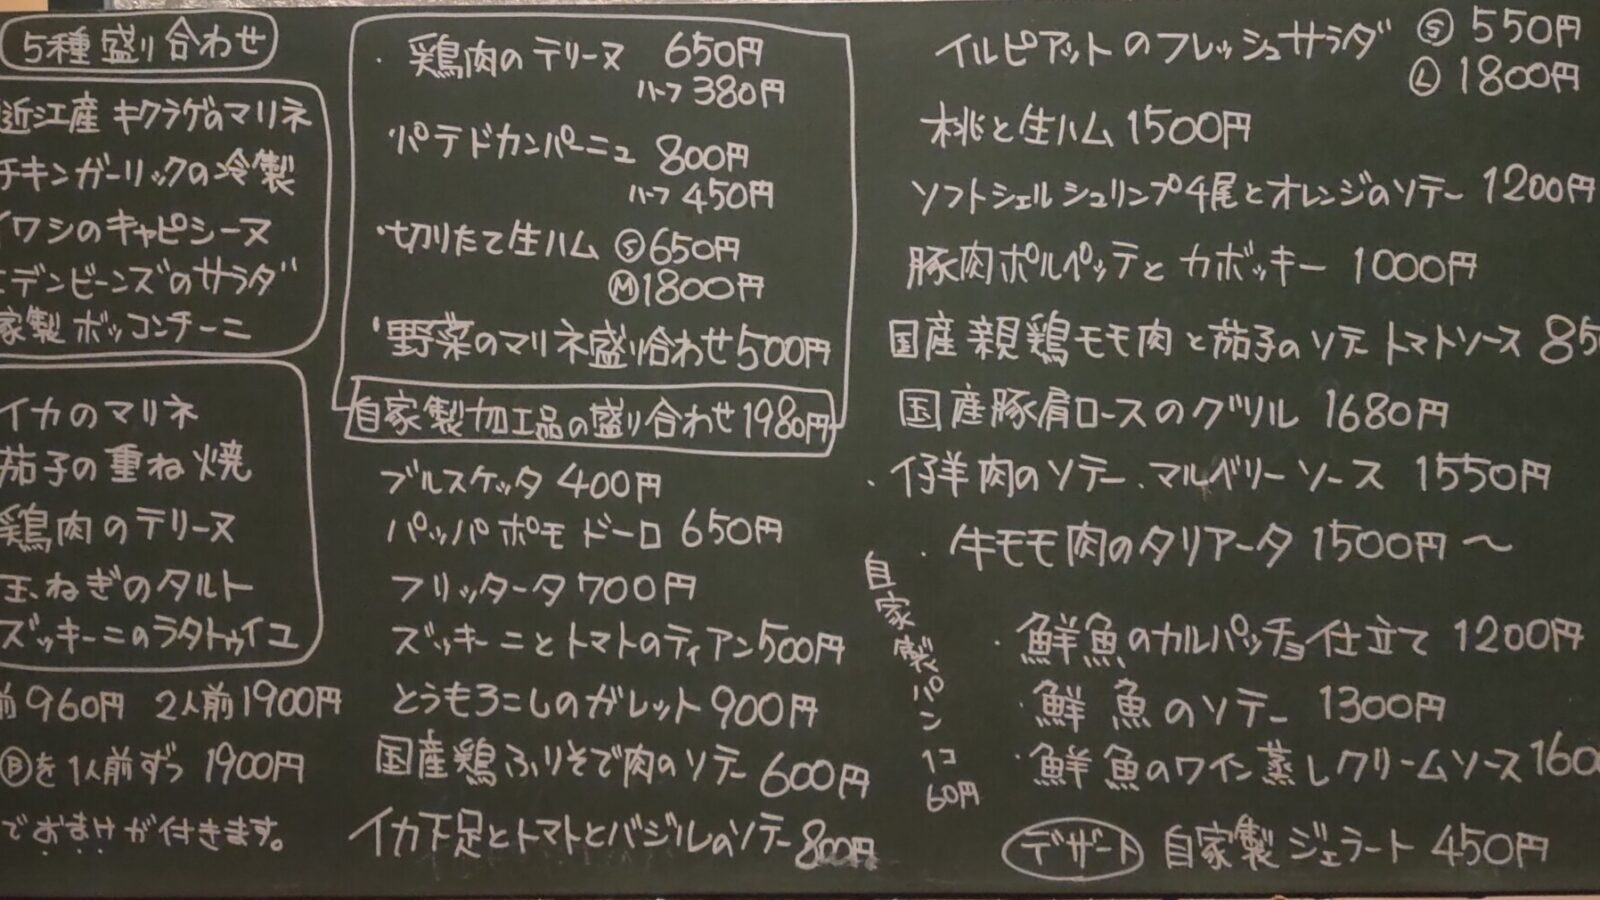 5種盛り合わせ
近江産キクラゲのマリネ
チキンガーリックの冷製
イワシのキャピシーヌ
エデンビーンズのサラダ
家製ボッコンチーニ
イカのマリネ
茄子の重ね焼
鶏肉のテリーヌ
玉ねぎのタルト
ズッキーニのラタトゥイユ
前960円 2人前1900円
Ⓑを1人前ずつ 1900円
でおまけが付きます。
・鶏肉のテリーヌ 650円
ハーフ380円
・パテドカンパーニュ 800円
ハーフ450円
・切りたて生ハム Ⓢ650円
Ⓜ1800円
・野菜のマリネ盛り合わせ500円
自家製加工品の盛り合わせ1980円
ブルスケッタ 400円
パッパポモドーロ 650円
フリッタータ 700円
ズッキーニとトマトのティアン500円
とうもろこしのガレット900円
国産鶏ふりそで肉のソテー600円
イカ下足とトマトとバジルのソテー800円
イルピアットのフレッシュサラダ Ⓢ 550円
Ⓛ 1800円
桃と生ハム 1500円
ソフトシェルシュリンプ4尾とオレンジのソテー 1200円
豚肉ポルペッテとカボッキー 1000円
国産親鶏モモ肉と茄子のソテートマトソース 85
国産豚肩ロースのグリル 1680円
・仔羊肉のソテー、マルベリーソース 1550円
・牛モモ肉のタリアータ 1500円〜
自家製パン1コ60円
・鮮魚のカルパッチョ仕立て 1200円
・鮮魚のソテー 1300円
・鮮魚のワイン蒸しクリームソース160
デザート 自家製ジェラート 450円